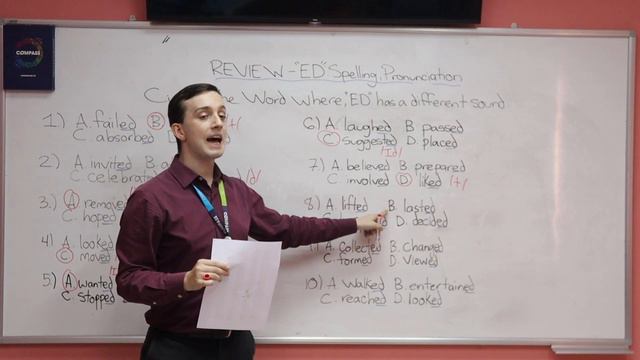 COMPASS
REVIEW - "ED" Spelling, Pronunciation
the Word Where, "ED" has a different sound
1) A. failed B
C. absorbed D.
2) A. invited B.
C. celebrat /d/
3.) A. remove
C. hoped
4) A. looked
C. moved
5) A. wanted
C. stopped
6) A. laughed B. passed
C. suggested D. placed
/Id/
7) A. believed B. prepared
C. involved D. liked /t/
8) A. lifted B. lasted
D. decided
A. collected B. changed
C. formed D. viewed
10) A. walked B. entertained
C. reached D. looked